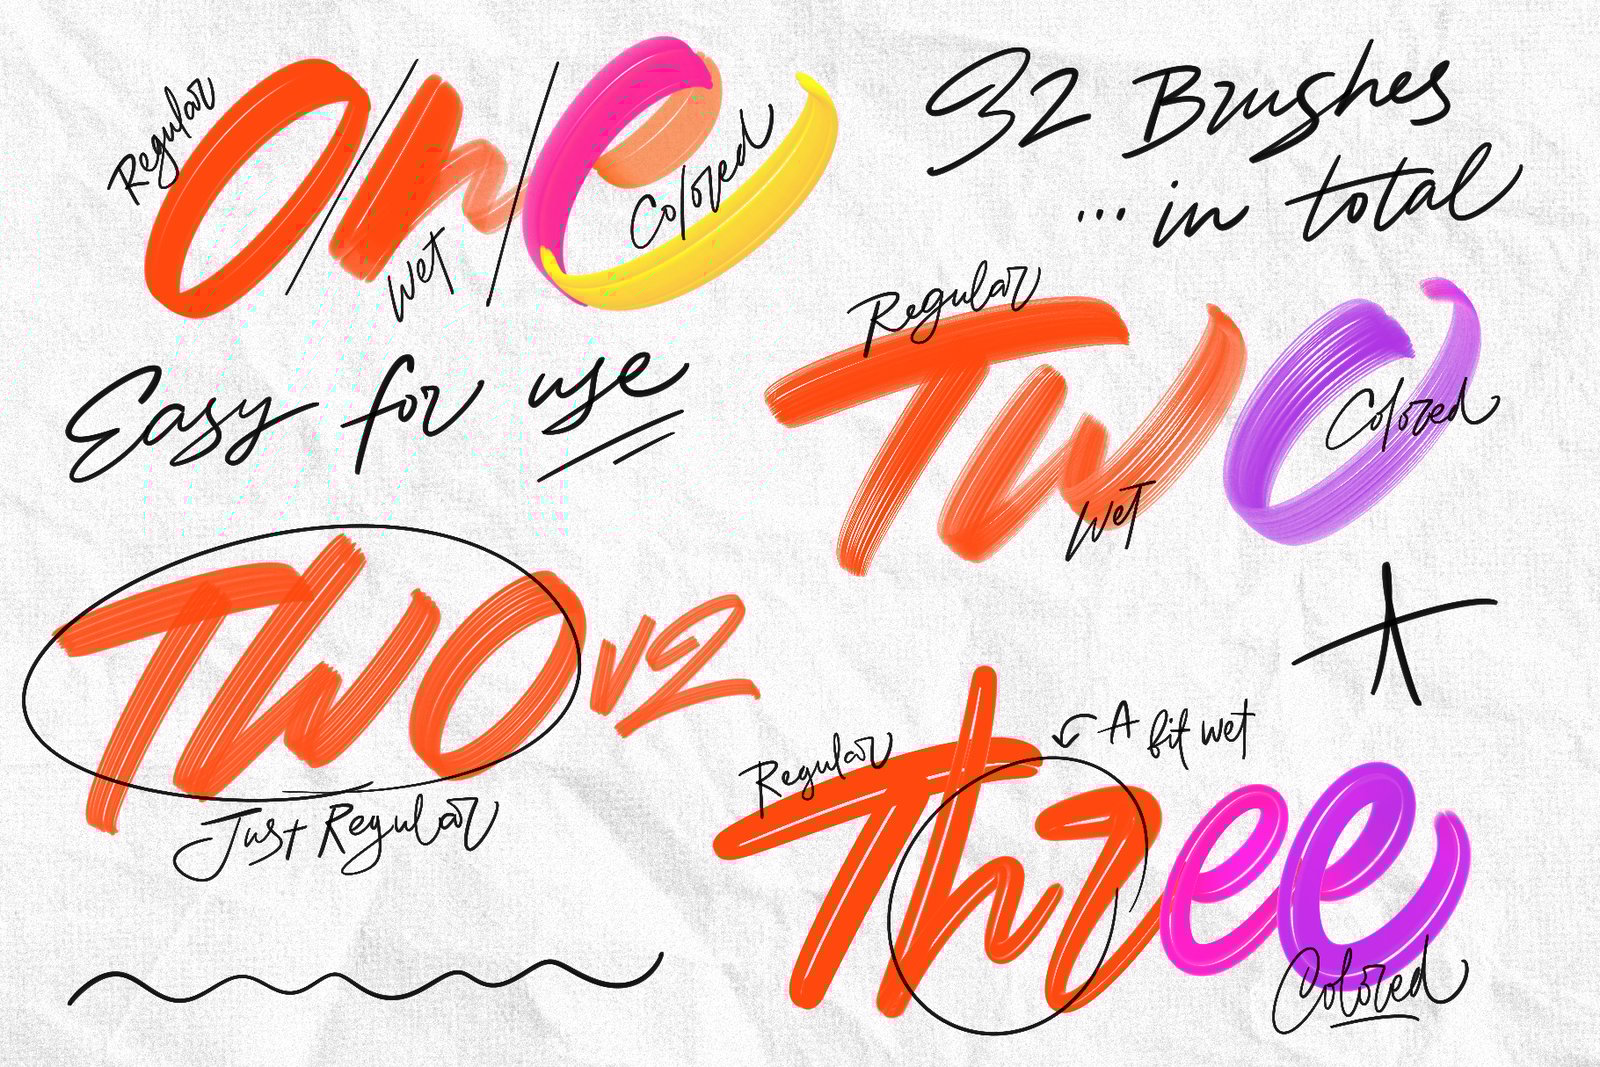 Regular
One
Wet
Colored
32 Brushes
... in total
Easy for use
Regular
Two
Wet
Colored
Two v2
Just Regular
A bit wet
Regular
Three
Colored